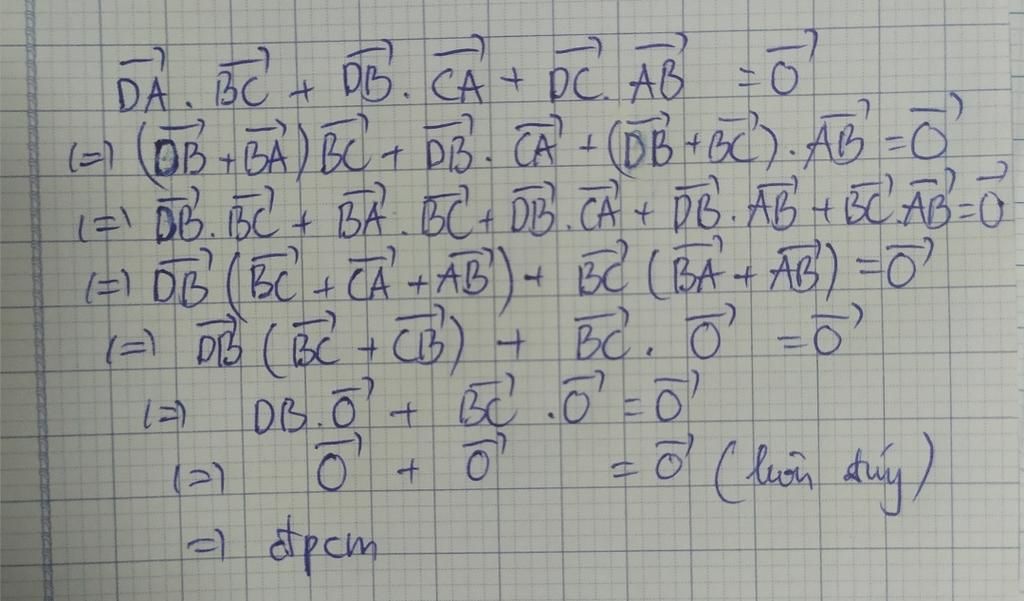 $\overrightarrow{DA} . \overrightarrow{BC} + \overrightarrow{DB} . \overrightarrow{CA} + \overrightarrow{DC} . \overrightarrow{AB} = \overrightarrow{0}$
(=) $(\overrightarrow{DB} + \overrightarrow{BA}) \overrightarrow{BC} + \overrightarrow{DB} . \overrightarrow{CA} + (\overrightarrow{DB} + \overrightarrow{BC}) . \overrightarrow{AB} = \overrightarrow{0}$
(=) $\overrightarrow{DB} . \overrightarrow{BC} + \overrightarrow{BA} . \overrightarrow{BC} + \overrightarrow{DB} . \overrightarrow{CA} + \overrightarrow{DB} . \overrightarrow{AB} + \overrightarrow{BC} . \overrightarrow{AB} = \overrightarrow{0}$
(=) $\overrightarrow{DB} (\overrightarrow{BC} + \overrightarrow{CA} + \overrightarrow{AB}) + \overrightarrow{BC} (\overrightarrow{BA} + \overrightarrow{AB}) = \overrightarrow{0}$
(=) $\overrightarrow{DB} (\overrightarrow{BC} + \overrightarrow{CB}) + \overrightarrow{BC} . \overrightarrow{0} = \overrightarrow{0}$
(=) $DB . \overrightarrow{0} + \overrightarrow{BC} . \overrightarrow{0} = \overrightarrow{0}$
(=) $\overrightarrow{0} + \overrightarrow{0} = \overrightarrow{0}$ (luôn đúng)
=) đpcm